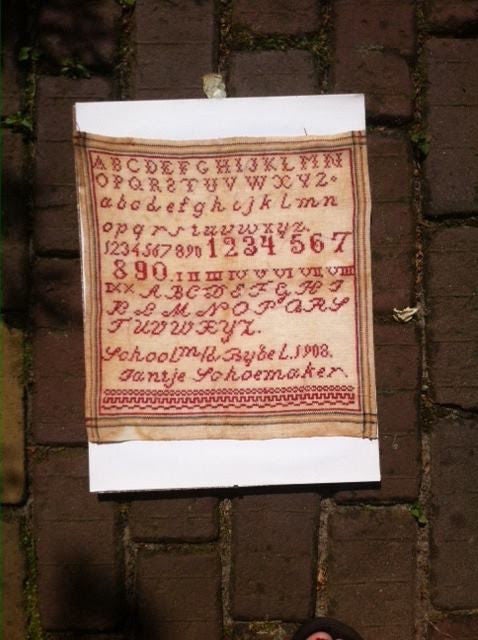 ABCDEFGHIJKLMN
OPQRSTUVWXYZ.
abcdefghijklmn
opqrstuvwxyz.
1234567890 1234567
890. I II III IV V VI VII VIII
IX X. ABCDEFGHI
KLMNOPQRS
TUVWXYZ.
School m/d Bybel. 1908.
Jantje Schoemaker.